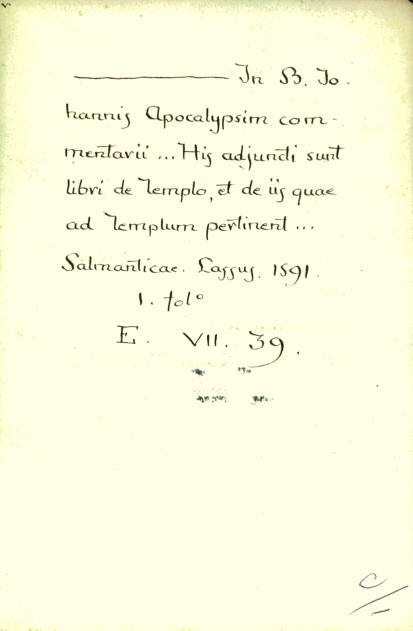 ——— In B. Jo-
hannis Apocalypsim com-
mentarii ... His adjuncti sunt
libri de Templo, et de iis quae
ad Templum pertinent ...
Salmanticae. Lassus. 1591.
1. folº
E. VII. 39.